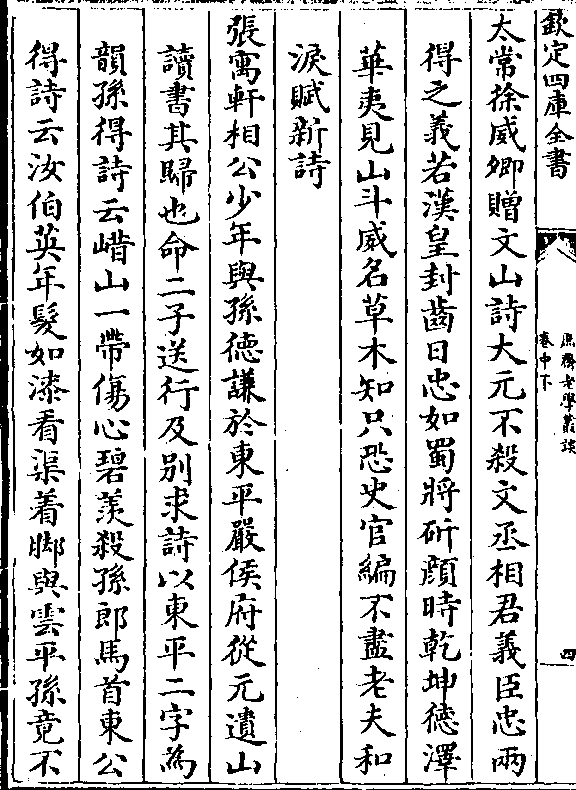 欽定四庫全書
庶齋老學叢談
卷中下
四
太常徐威卿贈文山詩大元不殺文丞相君義臣忠兩
得之義若漢皇封齒日忠如蜀將斫顔時乾坤德澤
華夷見山斗威名草木知只恐史官編不盡老夫和
淚賦新詩
張寓軒相公少年與孫德謙於東平嚴侯府從元遺山
讀書其歸也命二子送行及别求詩以東平二字為
韻孫得詩云㟙山一帶傷心碧羨殺孫郎馬首東公
得詩云汝伯英年髮如漆看渠着脚與雲平孫竟不